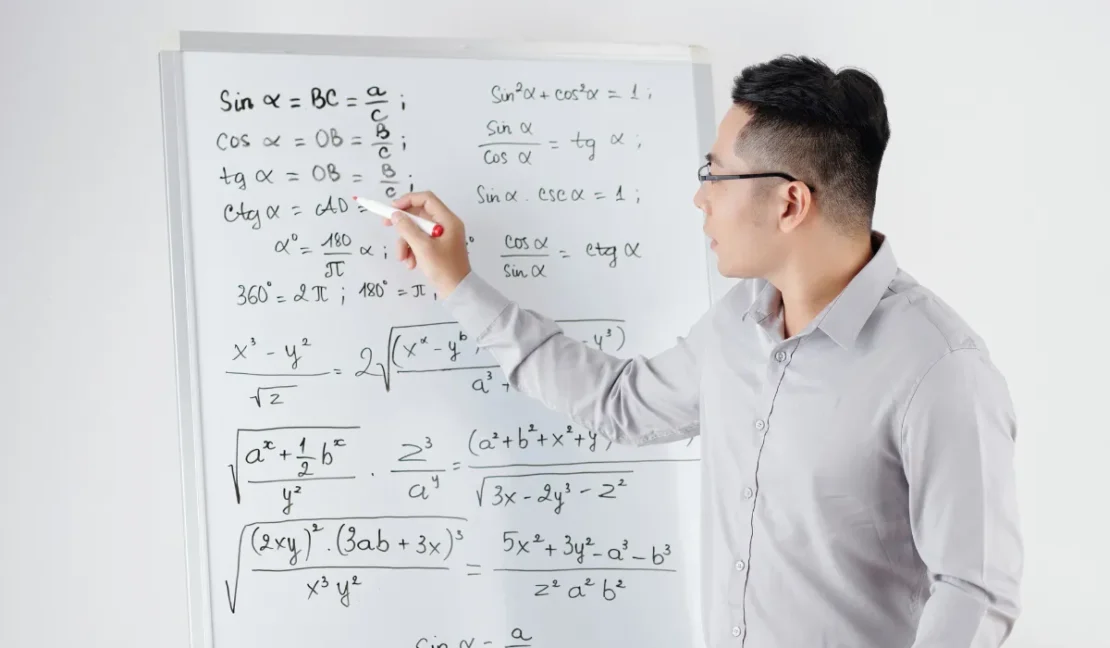 Sin α = BC = a/c ;
cos α = OB = B/c ;
tg α = OB = B/c ;
ctg α =
α° = 180/π α ;
360° = 2π ; 180° = π ,
Sin²α + cos²α = 1 ;
Sin α / Cos α = tg α ;
Sin α . csc α = 1 ;
cos α / sin α = ctg α
(x³ - y²) / √z = 2√((x^α - y^b - y³) / a³ +
√((a^x + 1/2 b^x) / y²) . z³ / a^y = (a² + b² + x² + y) / √(3x - 2y³ - z²)
√((2xy)² . (3ab + 3x)³ / x³ y²) = (5x² + 3y² - a³ - b³) / z² a² b²
sin α = a